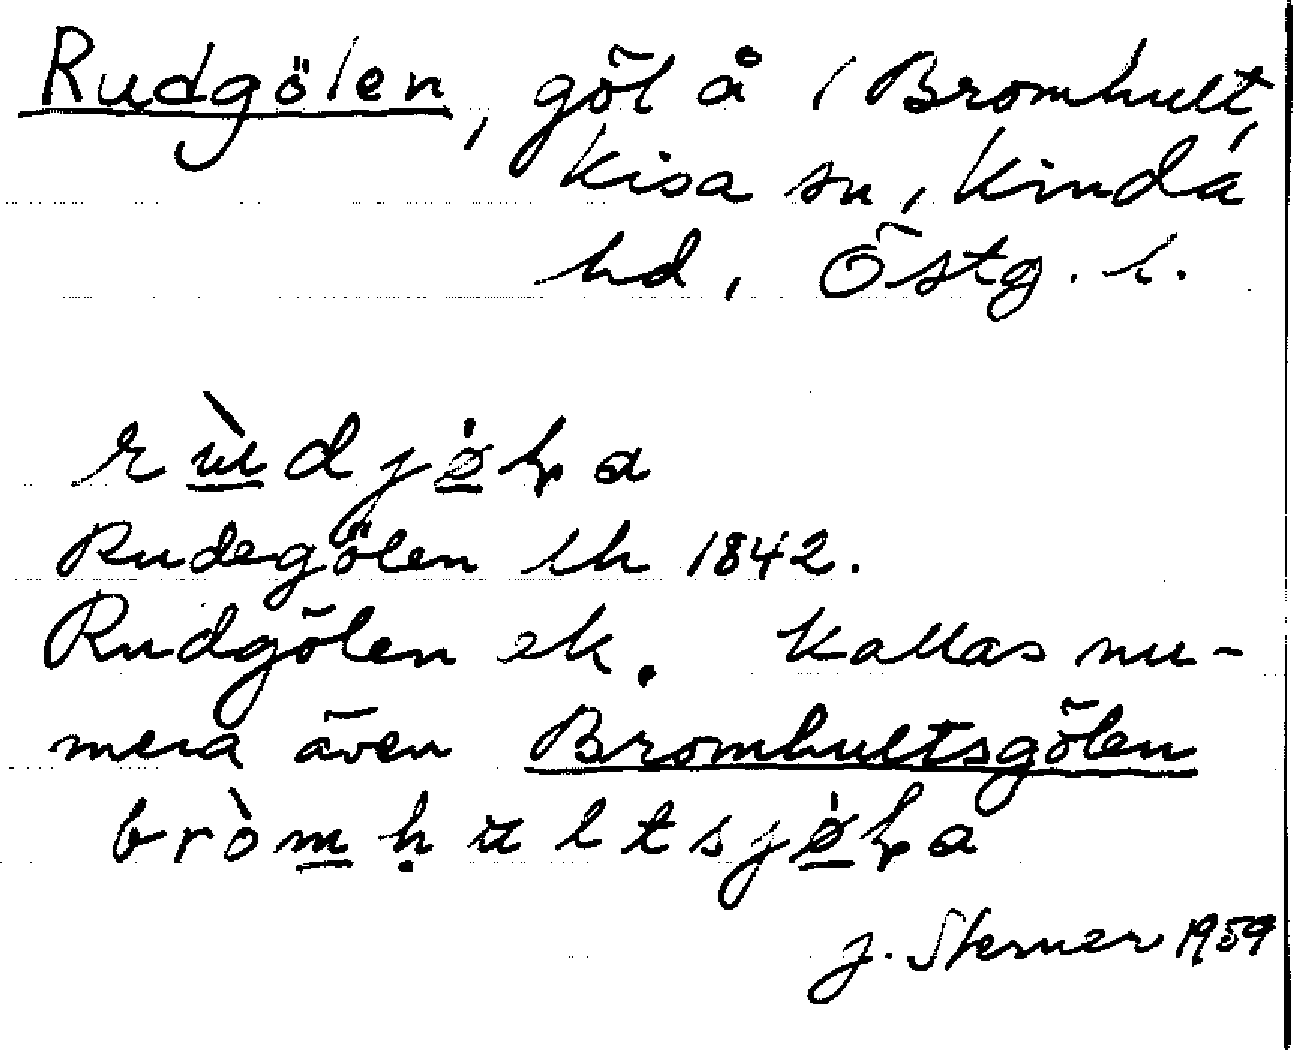 Rudgölen, göl å 1 Bromhult,
Kisa sn, Kinda
hd, Östg. l.
rùdjøla
Rudegölen lh 1842.
Rudgölen ek. Kallas nu-
mera även Bromhultsgölen
bròmhultsjøla
J. Sterner 1959